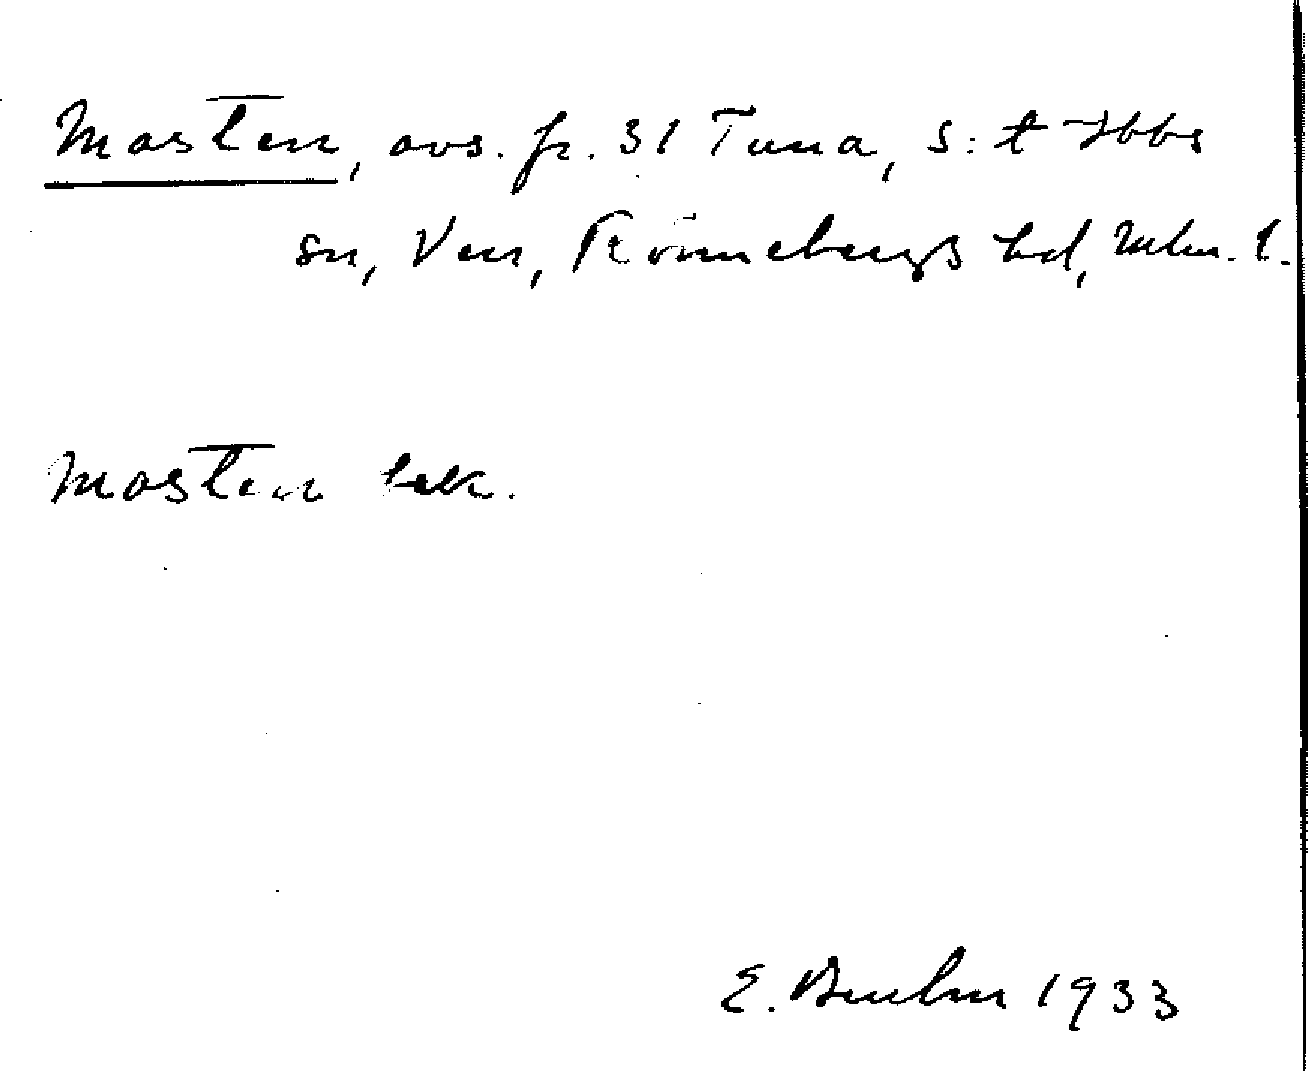 Masten, avs. fr. 31 Tuna, S:t Ibbs
sn, Ven, Rönnebergs hd, Mlm. l.
Masten bek.
E. 1933